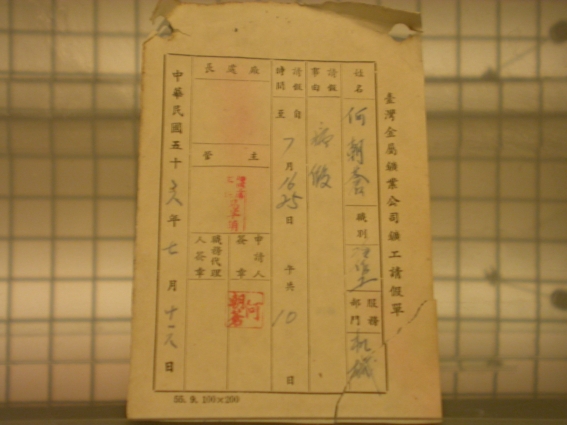 臺灣金屬鑛業公司鑛工請假單
姓名 何朝 職別 服務部門 機械
請假事由 病假
請假時間 自 至 7月16 25日 午共 10 日
廠處長 主管 申請人簽章 何朝 職務代理人簽章
中華民國五十八年七月十六日
55.9.100×200